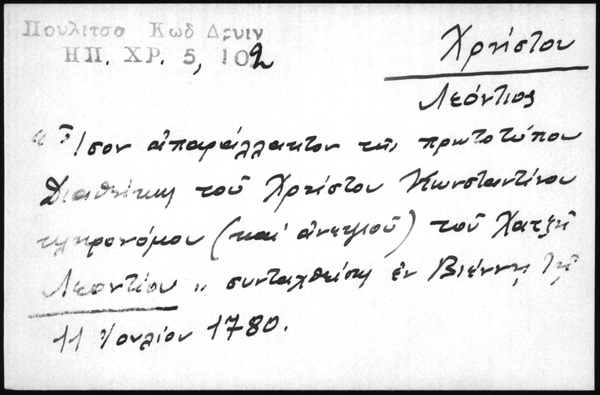 Πουλιτσα Κωδ Δρυιν
ΗΠ. ΧΡ. 5, 102
Χρήστου
Λεόντιος
« Ἴσον ἀπαράλλακτον τῆς πρωτοτύπου
Διαθήκης τοῦ Χρήστου Κωνσταντίνου
κληρονόμου (καί ἀνεψιοῦ) τοῦ Χατζῆ
Λεοντίου » συνταχθείσης ἐν Βιέννῃ τῇ
11 Ἰουλίου 1780.